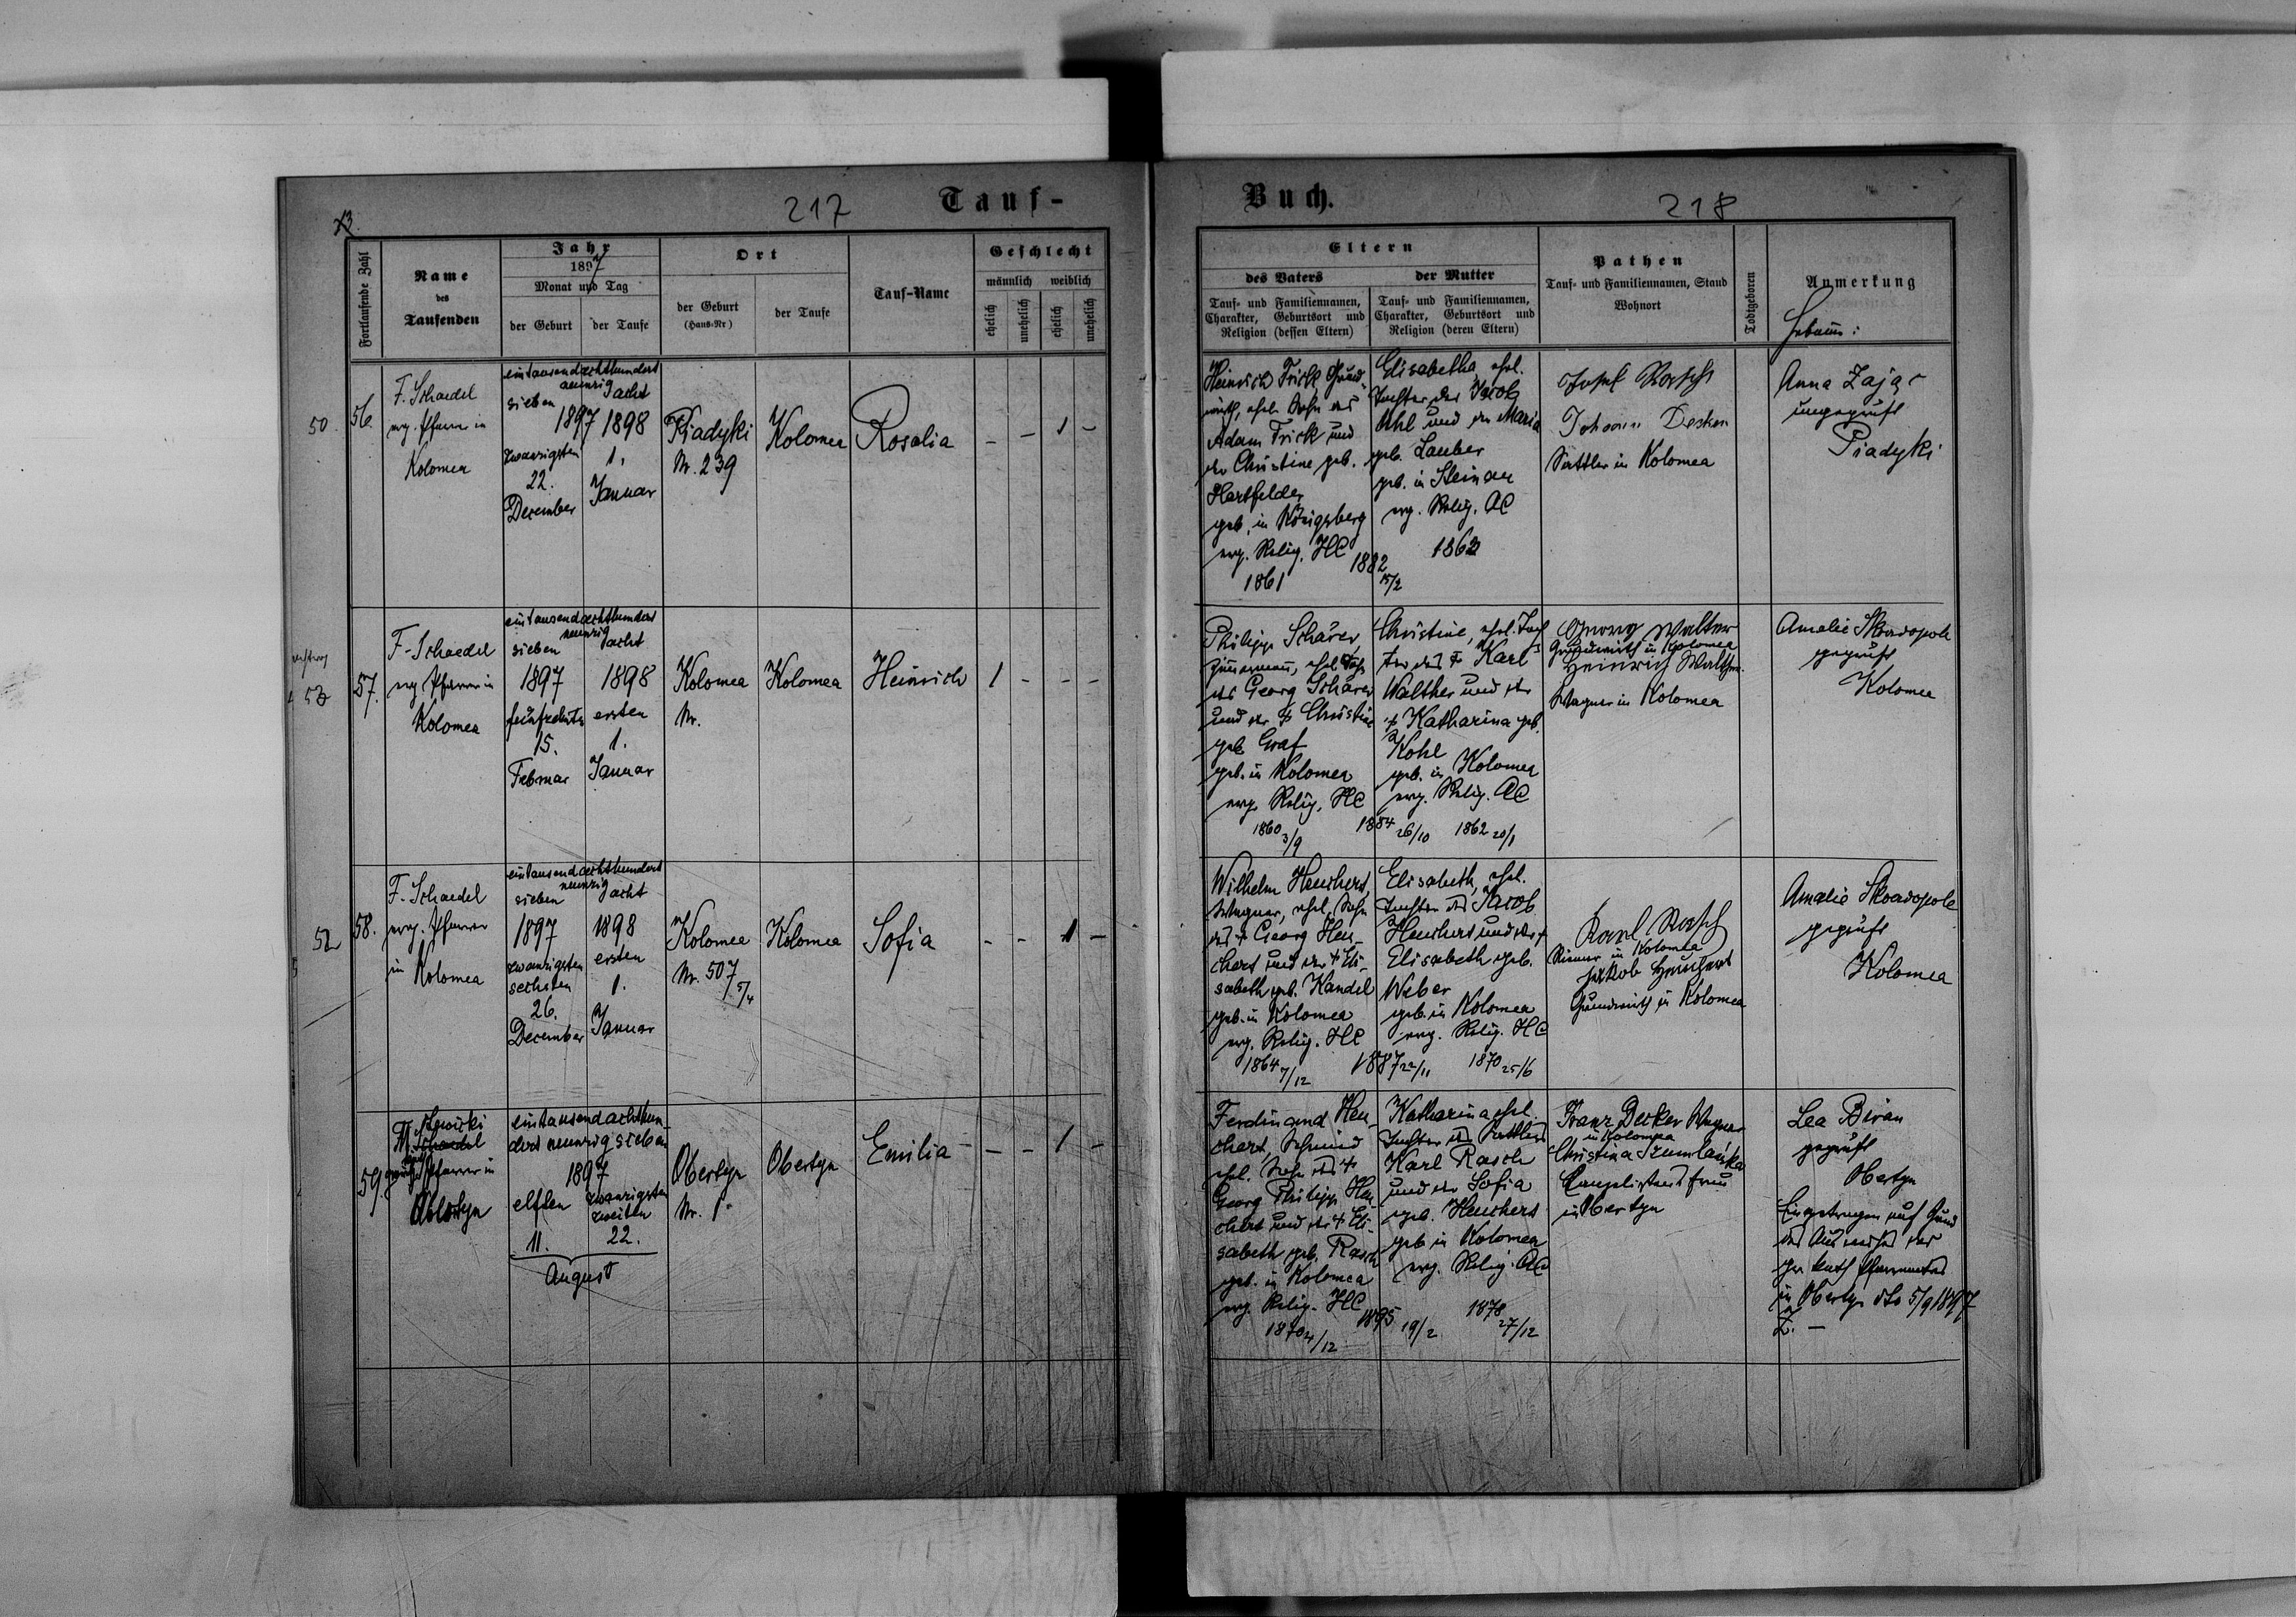 217
Tauf-
Buch.
218
Fortlaufende Zahl
Name
des
Taufenden
Jahr
1897
Monat und Tag
der Geburt
der Taufe
Ort
der Geburt
(Haus-Nr)
der Taufe
Tauf-Name
Geschlecht
männlich
weiblich
ehelich
unehelich
ehelich
unehelich
Eltern
des Vaters
Tauf- und Familiennamen,
Charakter, Geburtsort und
Religion (dessen Eltern)
der Mutter
Tauf- und Familiennamen,
Charakter, Geburtsort und
Religion (deren Eltern)
Pathen
Tauf- und Familiennamen, Stand
Wohnort
Todtgeboren
Anmerkung
50.
56.
F. Schaedel
evg. Pfarrer in
Kolomea
eintausendachthundert
neunzig
sieben
acht
1897
1898
zwanzigsten
22.
December
1.
Januar
Piadyki
Nr. 239
Kolomea
Rosalia
- - 1 -
Heinrich Frick Grund-
wirth, ehel. Sohn des
Adam Frick und
der Christine geb.
Hartfelder
geb. in Königsberg
evg. Relig. HC
1861
1882
15/2
Elisabetha, ehel.
Tochter des Jacob
Uhl und der Maria
geb. Lauber
geb. in Steinau
evg. Relig. AC
1862
Johann
Sattler in Kolomea
Anna Zając
ungeprüft
Piadyki
57.
F. Schaedel
evg. Pfarrer in
Kolomea
eintausendachthundert
neunzig
sieben
acht
1897
1898
fünfzehnte
15.
Februar
ersten
1.
Januar
Kolomea
Nr.
Kolomea
Heinrich
1 - - -
Philipp Schärer
Zimmermann, ehel. Sohn
des Georg Schärer
und der † Christine
geb. Graf
geb. in Kolomea
evg. Relig. HC
1860 3/9
1884 26/10
Christine, ehel. Toch
ter des † Karl
Walther und der
† Katharina geb.
Kohl
geb. in Kolomea
evg. Relig. AC
1862 20/1
Georg Walter
Grundwirth in Kolomea
Heinrich Walther
Wagner in Kolomea
Amalie Skwadopole
geprüft
Kolomea
52
58.
F. Schaedel
evg. Pfarrer
in Kolomea
eintausendachthundert
neunzig
sieben
acht
1897
1898
zwanzigsten
sechsten
26.
December
ersten
1.
Januar
Kolomea
Nr. 507
5/4
Kolomea
Sofia
- - 1 -
Wilhelm Heuchert,
Wagner, ehel. Sohn
des † Georg Heu-
chert und der † Eli-
sabeth geb. Kandel
geb. in Kolomea
evg. Relig. HC
1864 7/12
1887 22/11
Elisabeth, ehel.
Tochter des Jacob
Heuchert und der †
Elisabeth geb.
Weber
geb. in Kolomea
evg. Relig. HC
1870 25/6
Karl Rasch
Riemer in Kolomea
Jakob Heuchert
Grundwirth in Kolomea
Amalie Skwadopole
geprüft
Kolomea
59
Schaedel
Pfarrer in
Obertyn
eintausendachthun-
dert neunzig sieben
1897
elften
11.
zwanzigsten
zweiten
22.
August
Obertyn
Nr. 1.
Obertyn
Emilia
- - 1 -
Ferdinand Heu-
chert, Schmied
ehel. Sohn des †
Georg Philipp Heu-
chert und der † Eli-
sabeth geb. Rasch
geb. in Kolomea
evg. Relig. HC
1870 4/12
1895 19/2
Katharina ehel.
Tochter des Sattlers
Karl Rasch
und der Sofia
geb. Heuchert
geb. in Kolomea
evg. Relig. AC
1878 27/12
Franz Decker Wagner
in Kolomea
Christina
Kanzelistens frau
in Obertyn
Lea Biran
geprüft
Obertyn
Eingetragen auf Grund
des Ausweises des
gr. kath Pfarramtes
in Obertyn dto 5/9 1897
Z. —